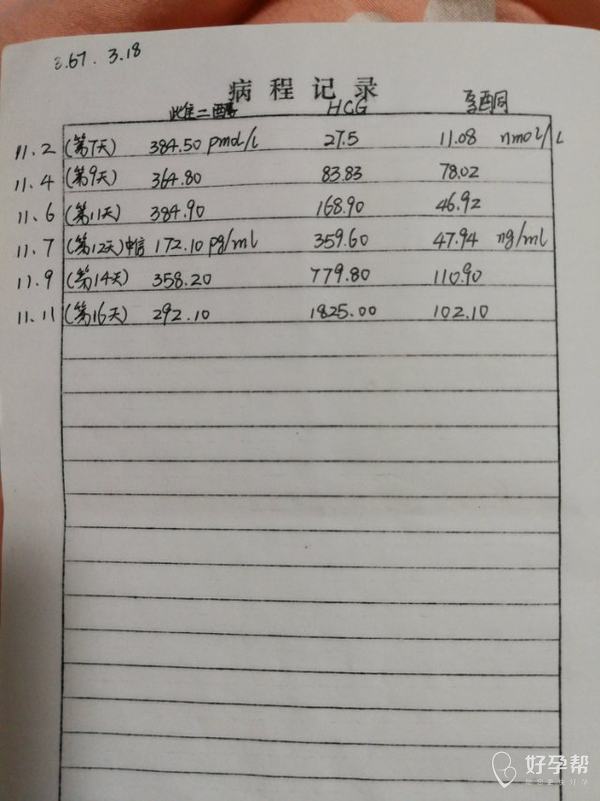 3.67. 3.18
病程记录
雌二醇 HCG 孕酮
11.2 (第7天) 384.50 pmol/L 27.5 11.08 nmol/L
11.4 (第9天) 364.80 83.83 78.02
11.6 (第11天) 384.90 168.90 46.92
11.7 (第12天)中信 172.10 pg/ml 359.60 47.94 ng/ml
11.9 (第14天) 358.20 779.80 110.90
11.11 (第16天) 292.10 1825.00 102.10
好孕帮